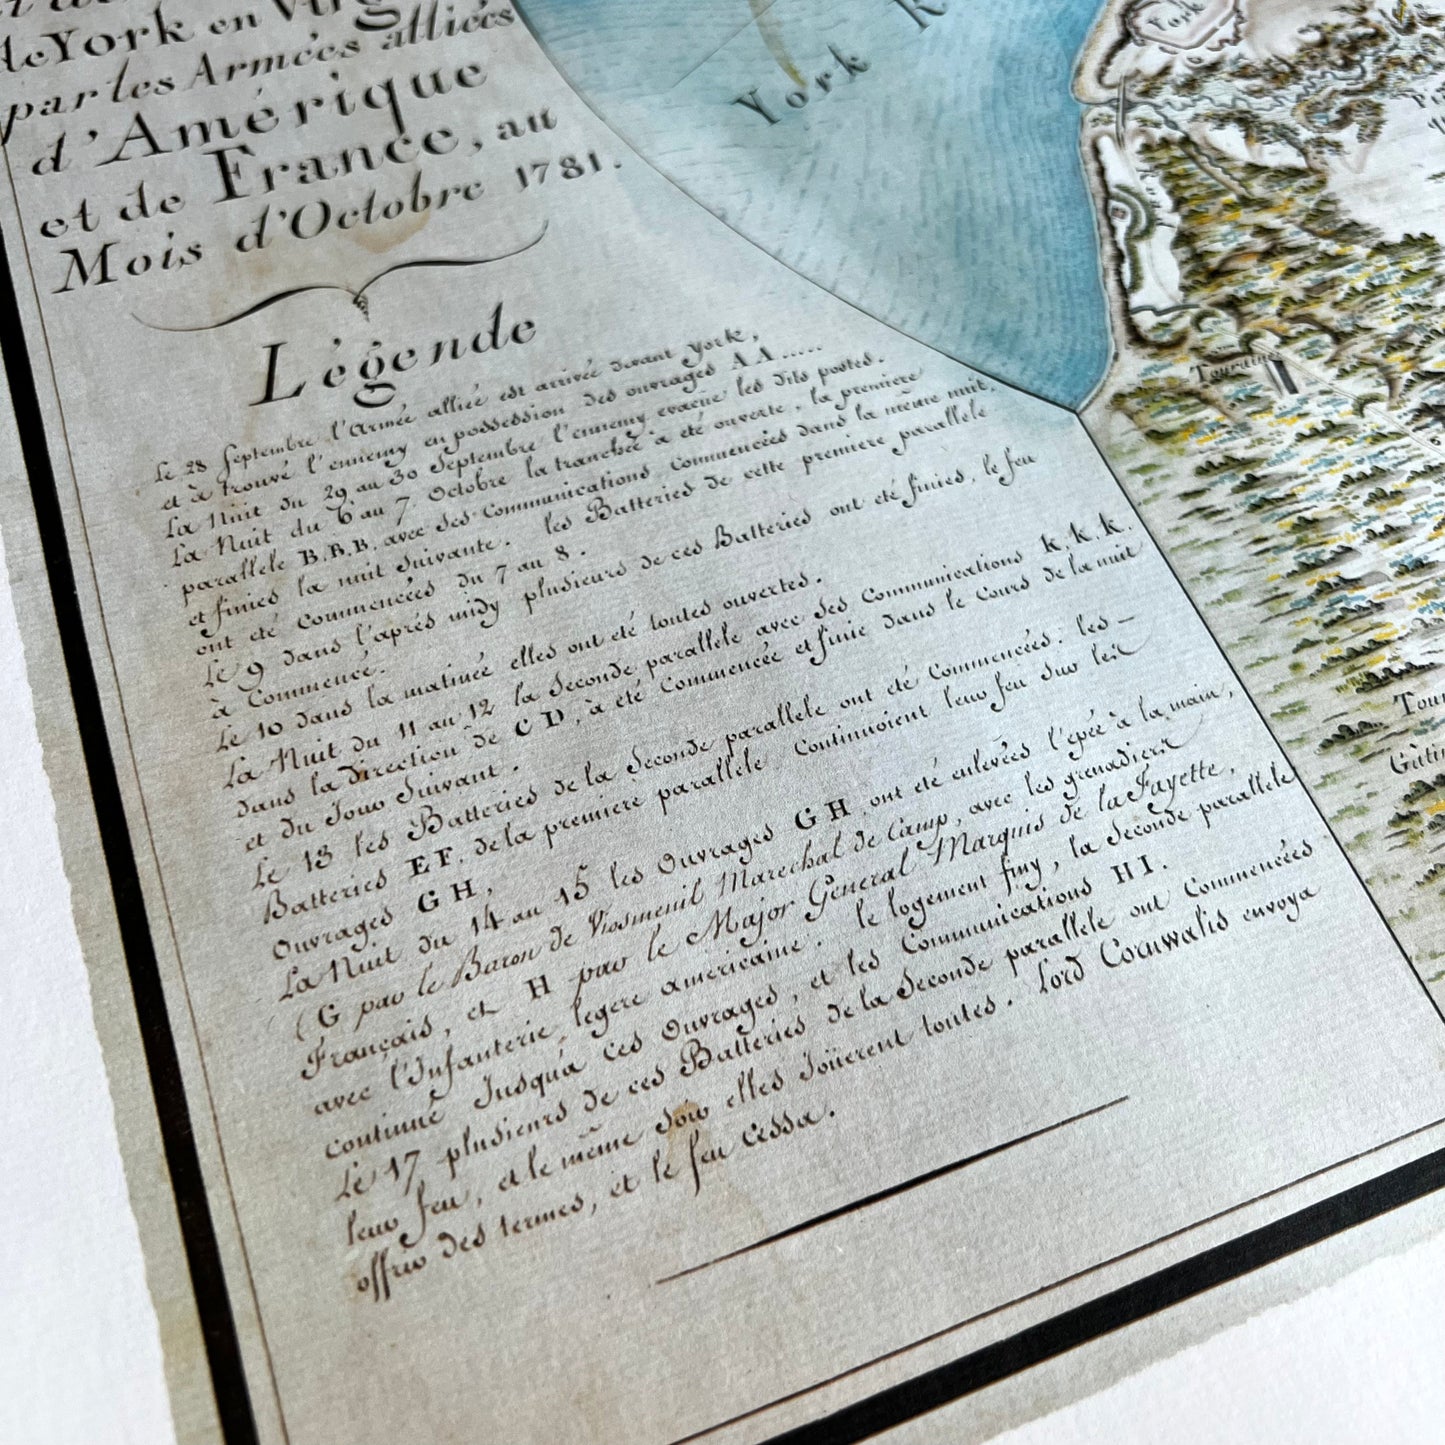 de York en Virg
par les Armées alliées
d'Amérique
et de France, au
Mois d'Octobre 1781.
Légende
Le 28 Septembre l'Armée alliée est arrivée devant York,
et à trouvé l'ennemy en possession des ouvrages A A.....
La Nuit du 29 au 30 Septembre l'ennemy evacüe les dits postes.
La Nuit du 6 au 7 Octobre la tranchée à été ouverte, la premiere
parallele B.B.B. avec ses Communications Commencées dans la même nuit,
et finies la nuit Suivante. les Batteries de cette premiere parallele
ont eté Commencées du 7 au 8.
Le 9 dans l'aprés midy plusieurs de ces Batteries ont eté finies, le feu
à Commencé.
Le 10 dans la matinée elles ont eté toutes ouvertes.
La Nuit du 11 au 12 la Seconde parallele avec ses Communications K.K.K.
dans la direction de C D, à eté Commencée et finie dans le Cours de la nuit
et du Jour Suivant.
Le 13 les Batteries de la Seconde parallele ont eté Commencées. les
Batteries E F. de la premiere parallele Continuoient leur feu sur les
Ouvrages G H,
La Nuit du 14 au 15 les Ouvrages G H, ont eté enlevées l'epée à la main,
(G par le Baron de Viosmenil Marechal de Camp, avec les grenadiers
Français, et H par le Major General Marquis de la Fayette,
avec l'Infanterie legere americaine. le logement finy, la Seconde parallele
continué Jusqu'a ces Ouvrages, et les Communications H I.
Le 17 plusieurs de ces Batteries de la Seconde parallele ont Commencées
leur feu, et le même Soir elles Joüerent toutes. Lord Cornwalis envoya
offrir des termes, et le feu cessa.
York R
York
Touraine
Tour
Gâtin